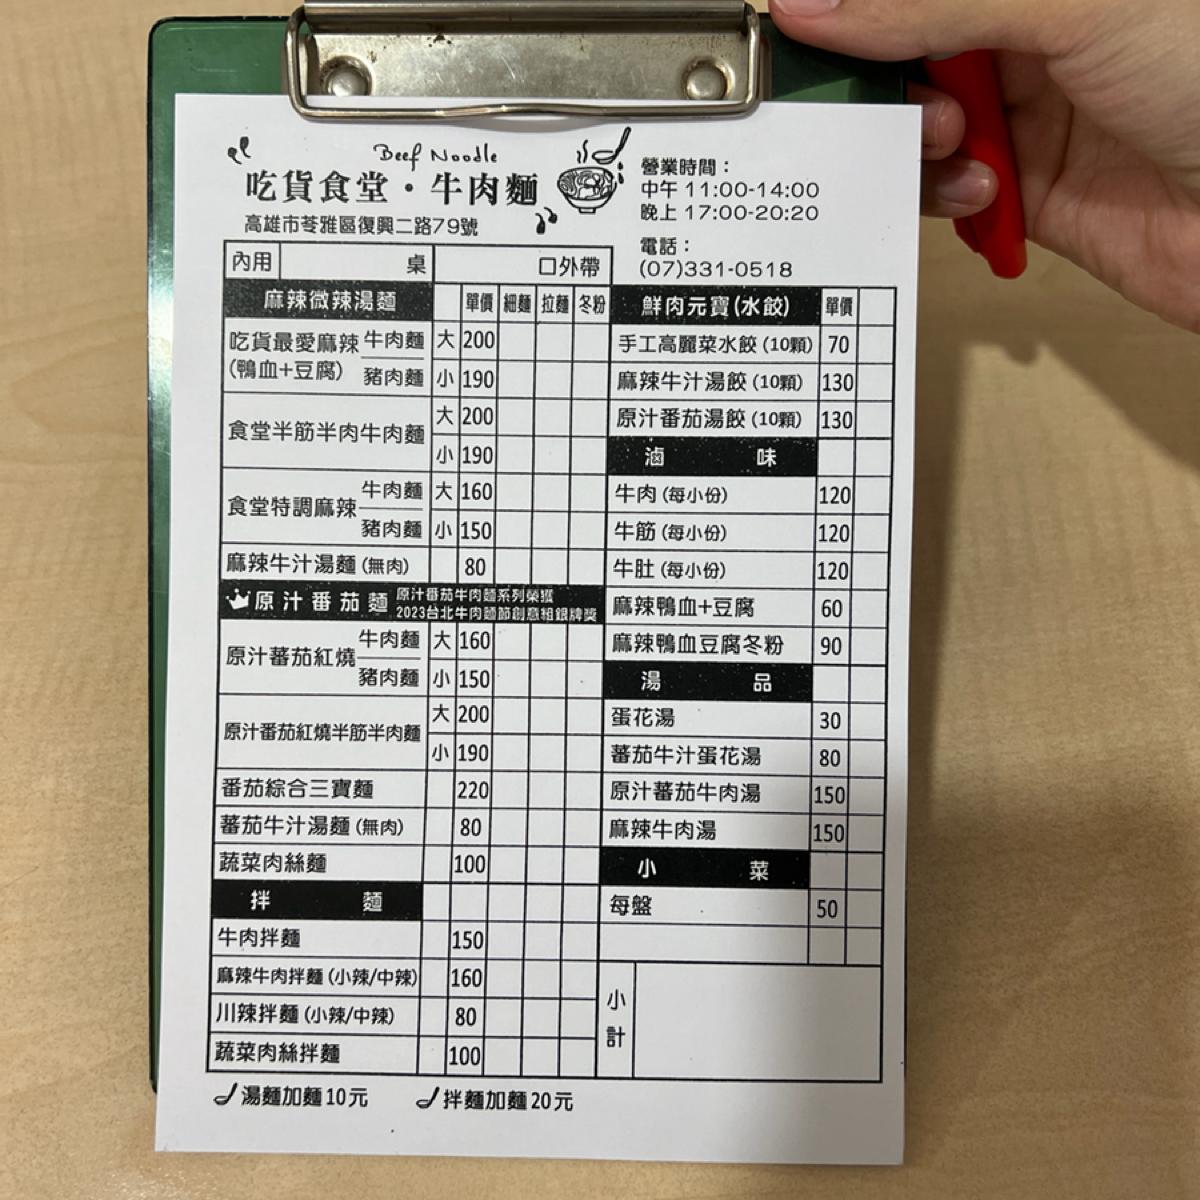 Beef Noodle
吃貨食堂・牛肉麵
高雄市苓雅區復興二路79號
營業時間：
中午 11:00-14:00
晚上 17:00-20:20
電話：
(07)331-0518
內用 桌 口外帶
麻辣微辣湯麵 單價 細麵 拉麵 冬粉
吃貨最愛麻辣 牛肉麵 大 200
(鴨血+豆腐) 豬肉麵 小 190
食堂半筋半肉牛肉麵 大 200
小 190
食堂特調麻辣 牛肉麵 大 160
豬肉麵 小 150
麻辣牛汁湯麵 (無肉) 80
原汁番茄麵 原汁番茄牛肉麵系列榮獲
2023台北牛肉麵節創意組銀牌獎
原汁蕃茄紅燒 牛肉麵 大 160
豬肉麵 小 150
原汁番茄紅燒半筋半肉麵 大 200
小 190
番茄綜合三寶麵 220
蕃茄牛汁湯麵 (無肉) 80
蔬菜肉絲麵 100
拌麵
牛肉拌麵 150
麻辣牛肉拌麵 (小辣/中辣) 160
川辣拌麵 (小辣/中辣) 80
蔬菜肉絲拌麵 100
鮮肉元寶(水餃) 單價
手工高麗菜水餃 (10顆) 70
麻辣牛汁湯餃 (10顆) 130
原汁番茄湯餃 (10顆) 130
滷味
牛肉 (每小份) 120
牛筋 (每小份) 120
牛肚 (每小份) 120
麻辣鴨血+豆腐 60
麻辣鴨血豆腐冬粉 90
湯品
蛋花湯 30
蕃茄牛汁蛋花湯 80
原汁蕃茄牛肉湯 150
麻辣牛肉湯 150
小菜
每盤 50
小計
湯麵加麵10元 拌麵加麵20元